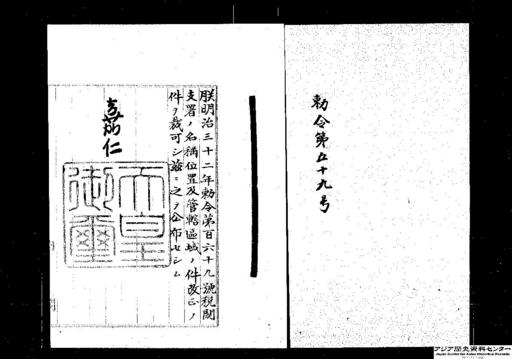 勅令第五十九号
朕明治三十二年勅令第百六十九號税関
支署ノ名稱位置及管轄區域ノ件改正ノ
件ヲ裁可シ茲ニ之ヲ公布セシム
嘉仁
天皇
御璽
アジア歴史資料センター
Japan Center for Asian Historical Records